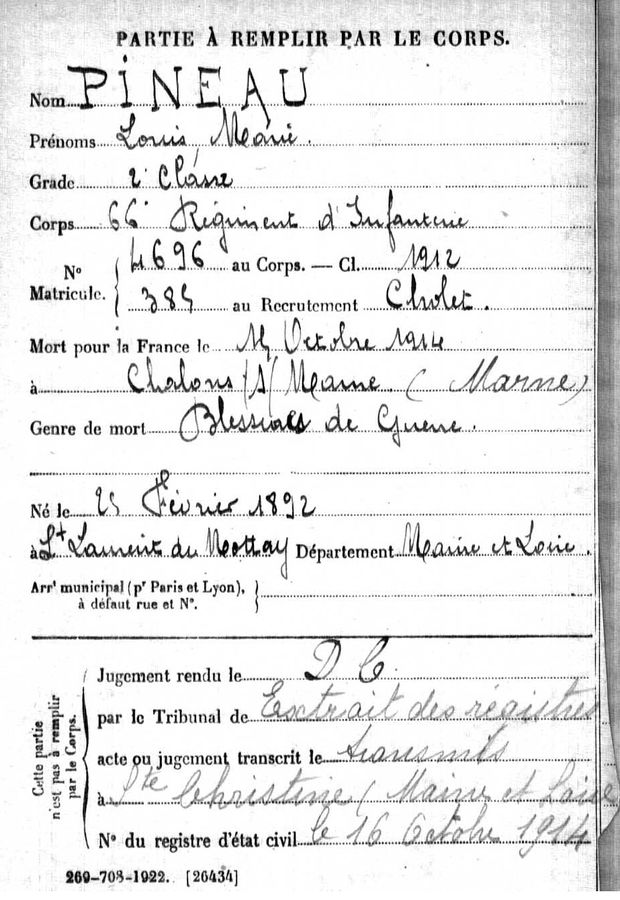 PARTIE À REMPLIR PAR LE CORPS.
Nom PINEAU
Prénoms Louis Marie.
Grade 2e Classe
Corps 66e Régiment d'Infanterie
No Matricule. 4696 au Corps. — Cl. 1912
385 au Recrutement Cholet.
Mort pour la France le Octobre 1914
à Chalons /S/ Marne (Marne)
Genre de mort Blessures de Guerre.
Né le 25 Février 1892
à St Laurent du Mottay Département Maine et Loire.
Arrt municipal (pr Paris et Lyon),
à défaut rue et No.
Cette partie
n'est pas à remplir
par le Corps.
Jugement rendu le D C.
par le Tribunal de Extrait des régistres
acte ou jugement transcrit le transmis
à Ste Christine (Maine et Loire
No du registre d'état civil le 16 Octobre 1914
269-708-1922. [26434]